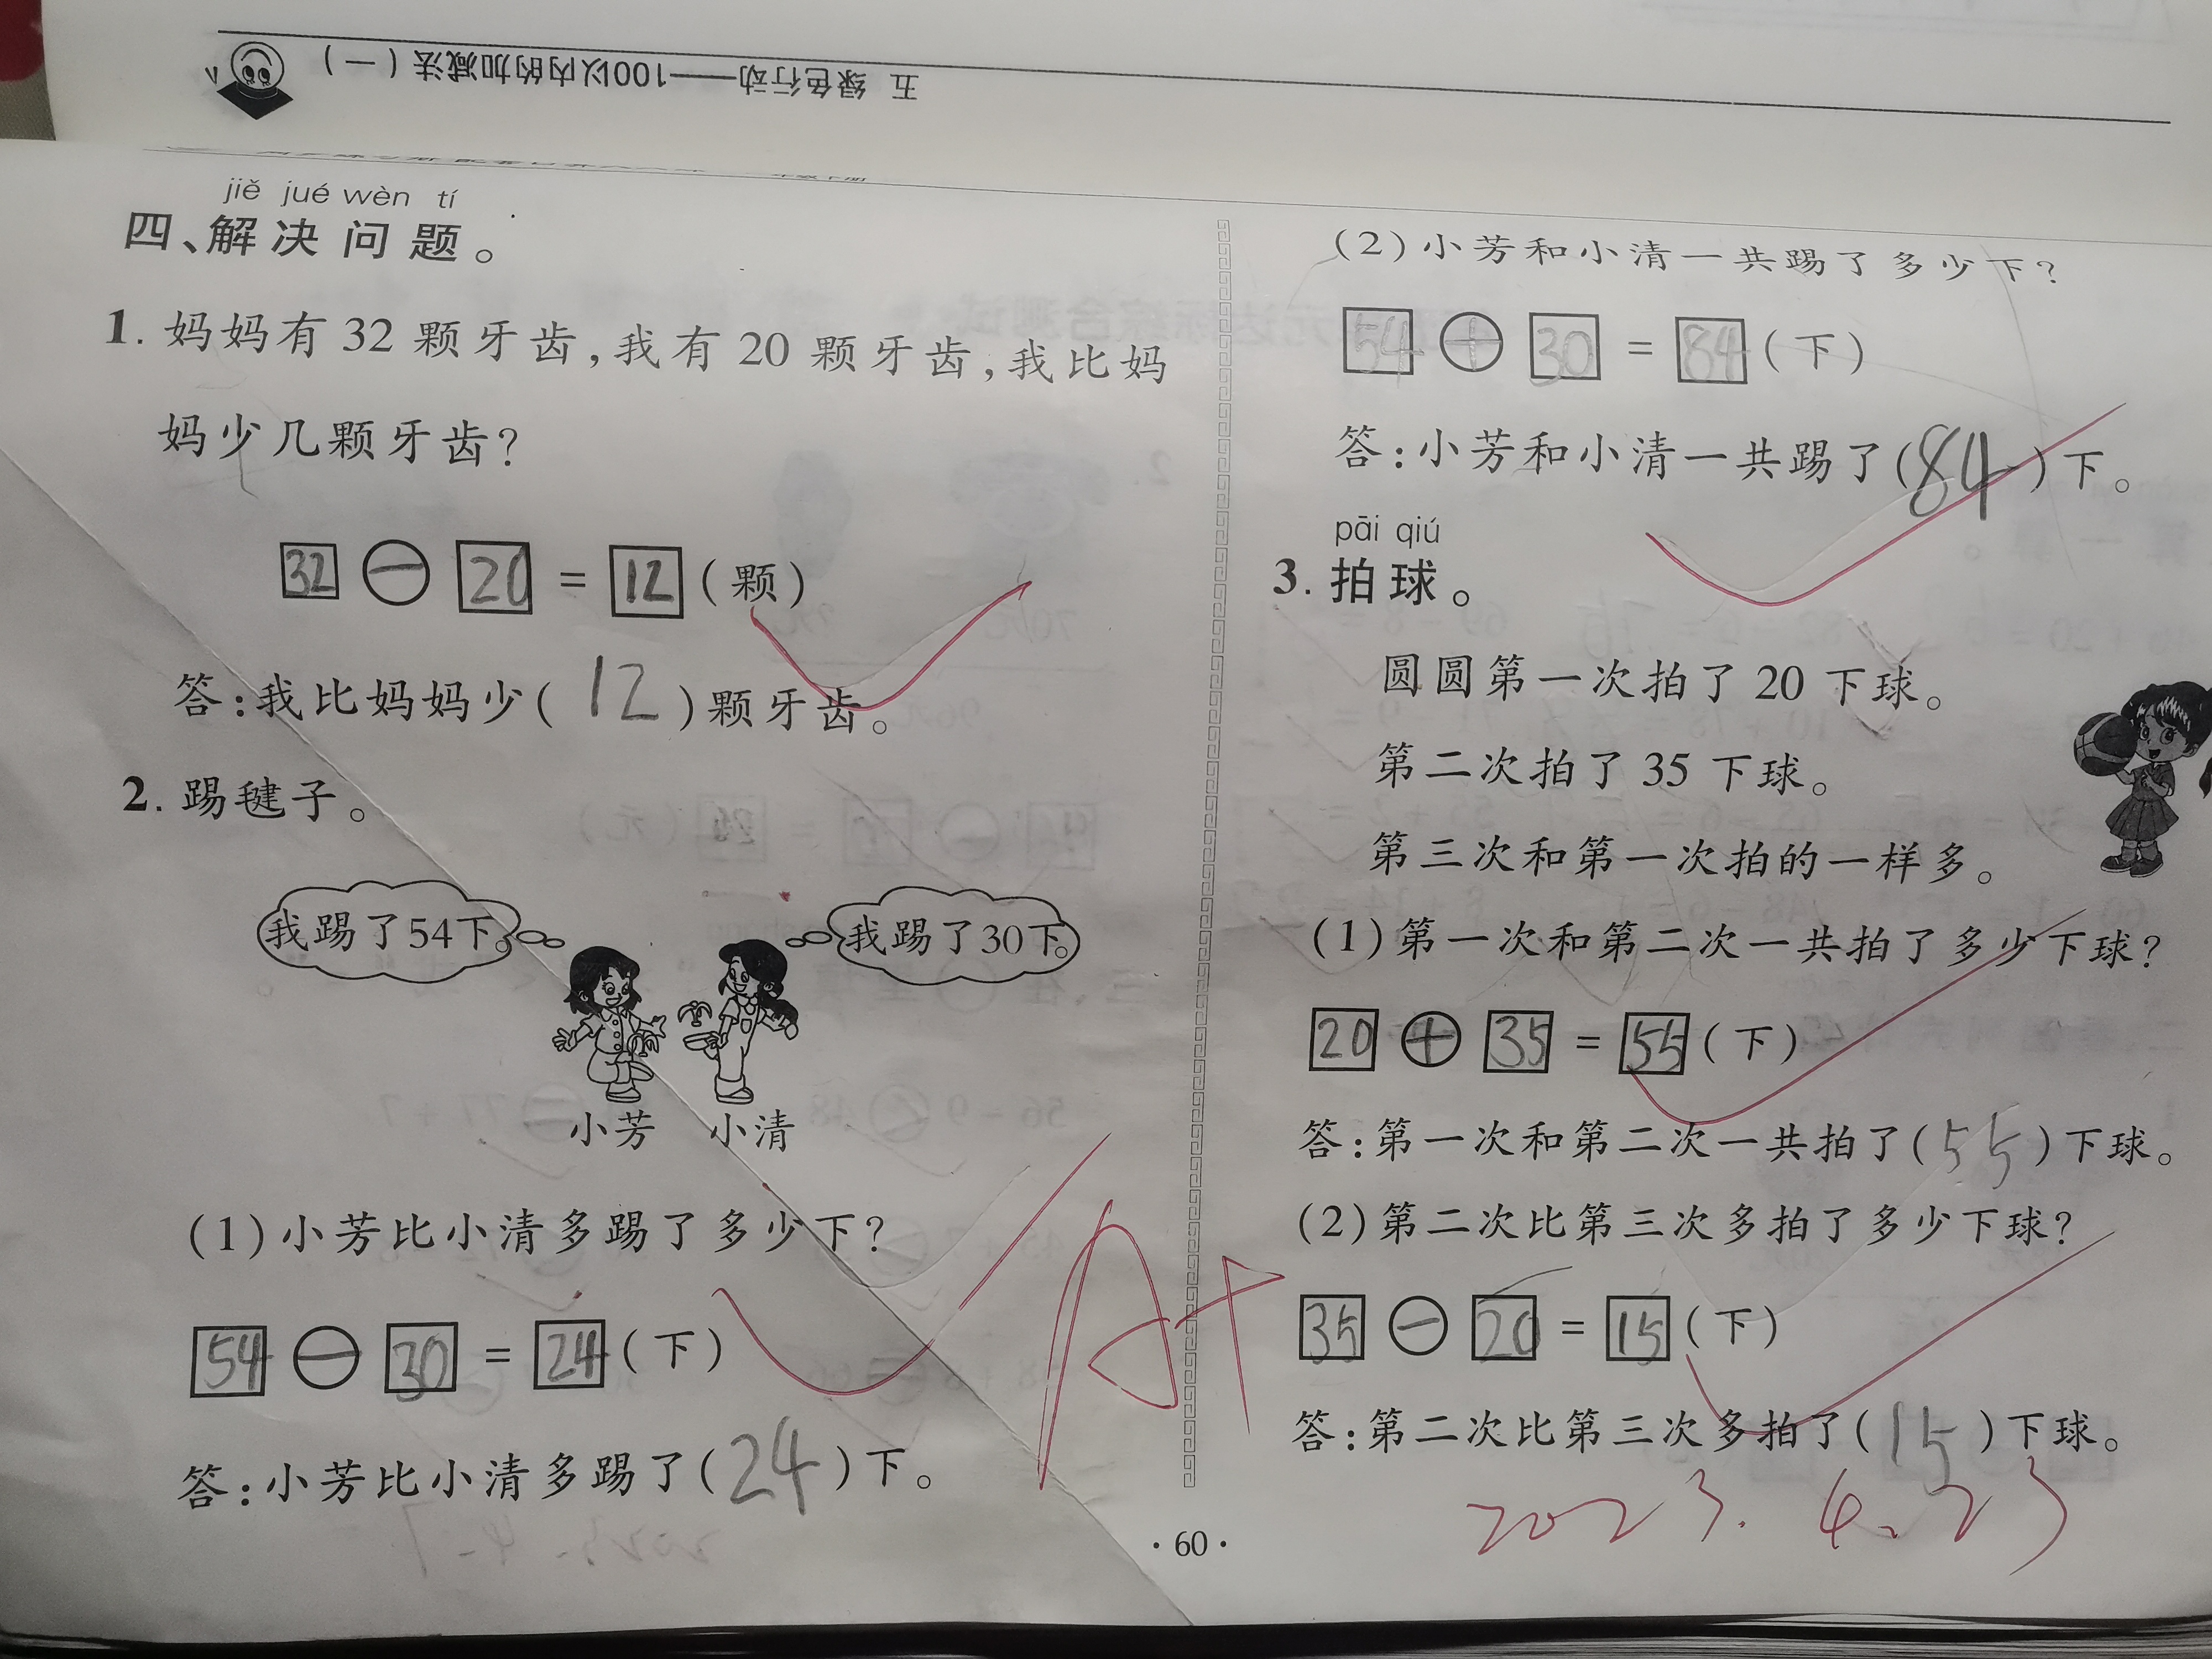 五 绿色行动——100以内的加减法(一)
jiě jué wèn tí
四、解决问题。
1. 妈妈有 32 颗牙齿,我有 20 颗牙齿,我比妈
妈少几颗牙齿?
32 - 20 = 12 (颗)
答:我比妈妈少( 12 )颗牙齿。
2. 踢毽子。
我踢了54下。
我踢了30下。
小芳 小清
(1)小芳比小清多踢了多少下?
54 - 30 = 24 (下)
答:小芳比小清多踢了( 24 )下。
A+
(2)小芳和小清一共踢了多少下?
54 + 30 = 84 (下)
答:小芳和小清一共踢了( 84 )下。
pāi qiú
3. 拍球。
圆圆第一次拍了 20 下球。
第二次拍了 35 下球。
第三次和第一次拍的一样多。
(1)第一次和第二次一共拍了多少下球?
20 + 35 = 55 (下)
答:第一次和第二次一共拍了( 55 )下球。
(2)第二次比第三次多拍了多少下球?
35 - 20 = 15 (下)
答:第二次比第三次多拍了( 15 )下球。
2023. 4. 23
· 60 ·